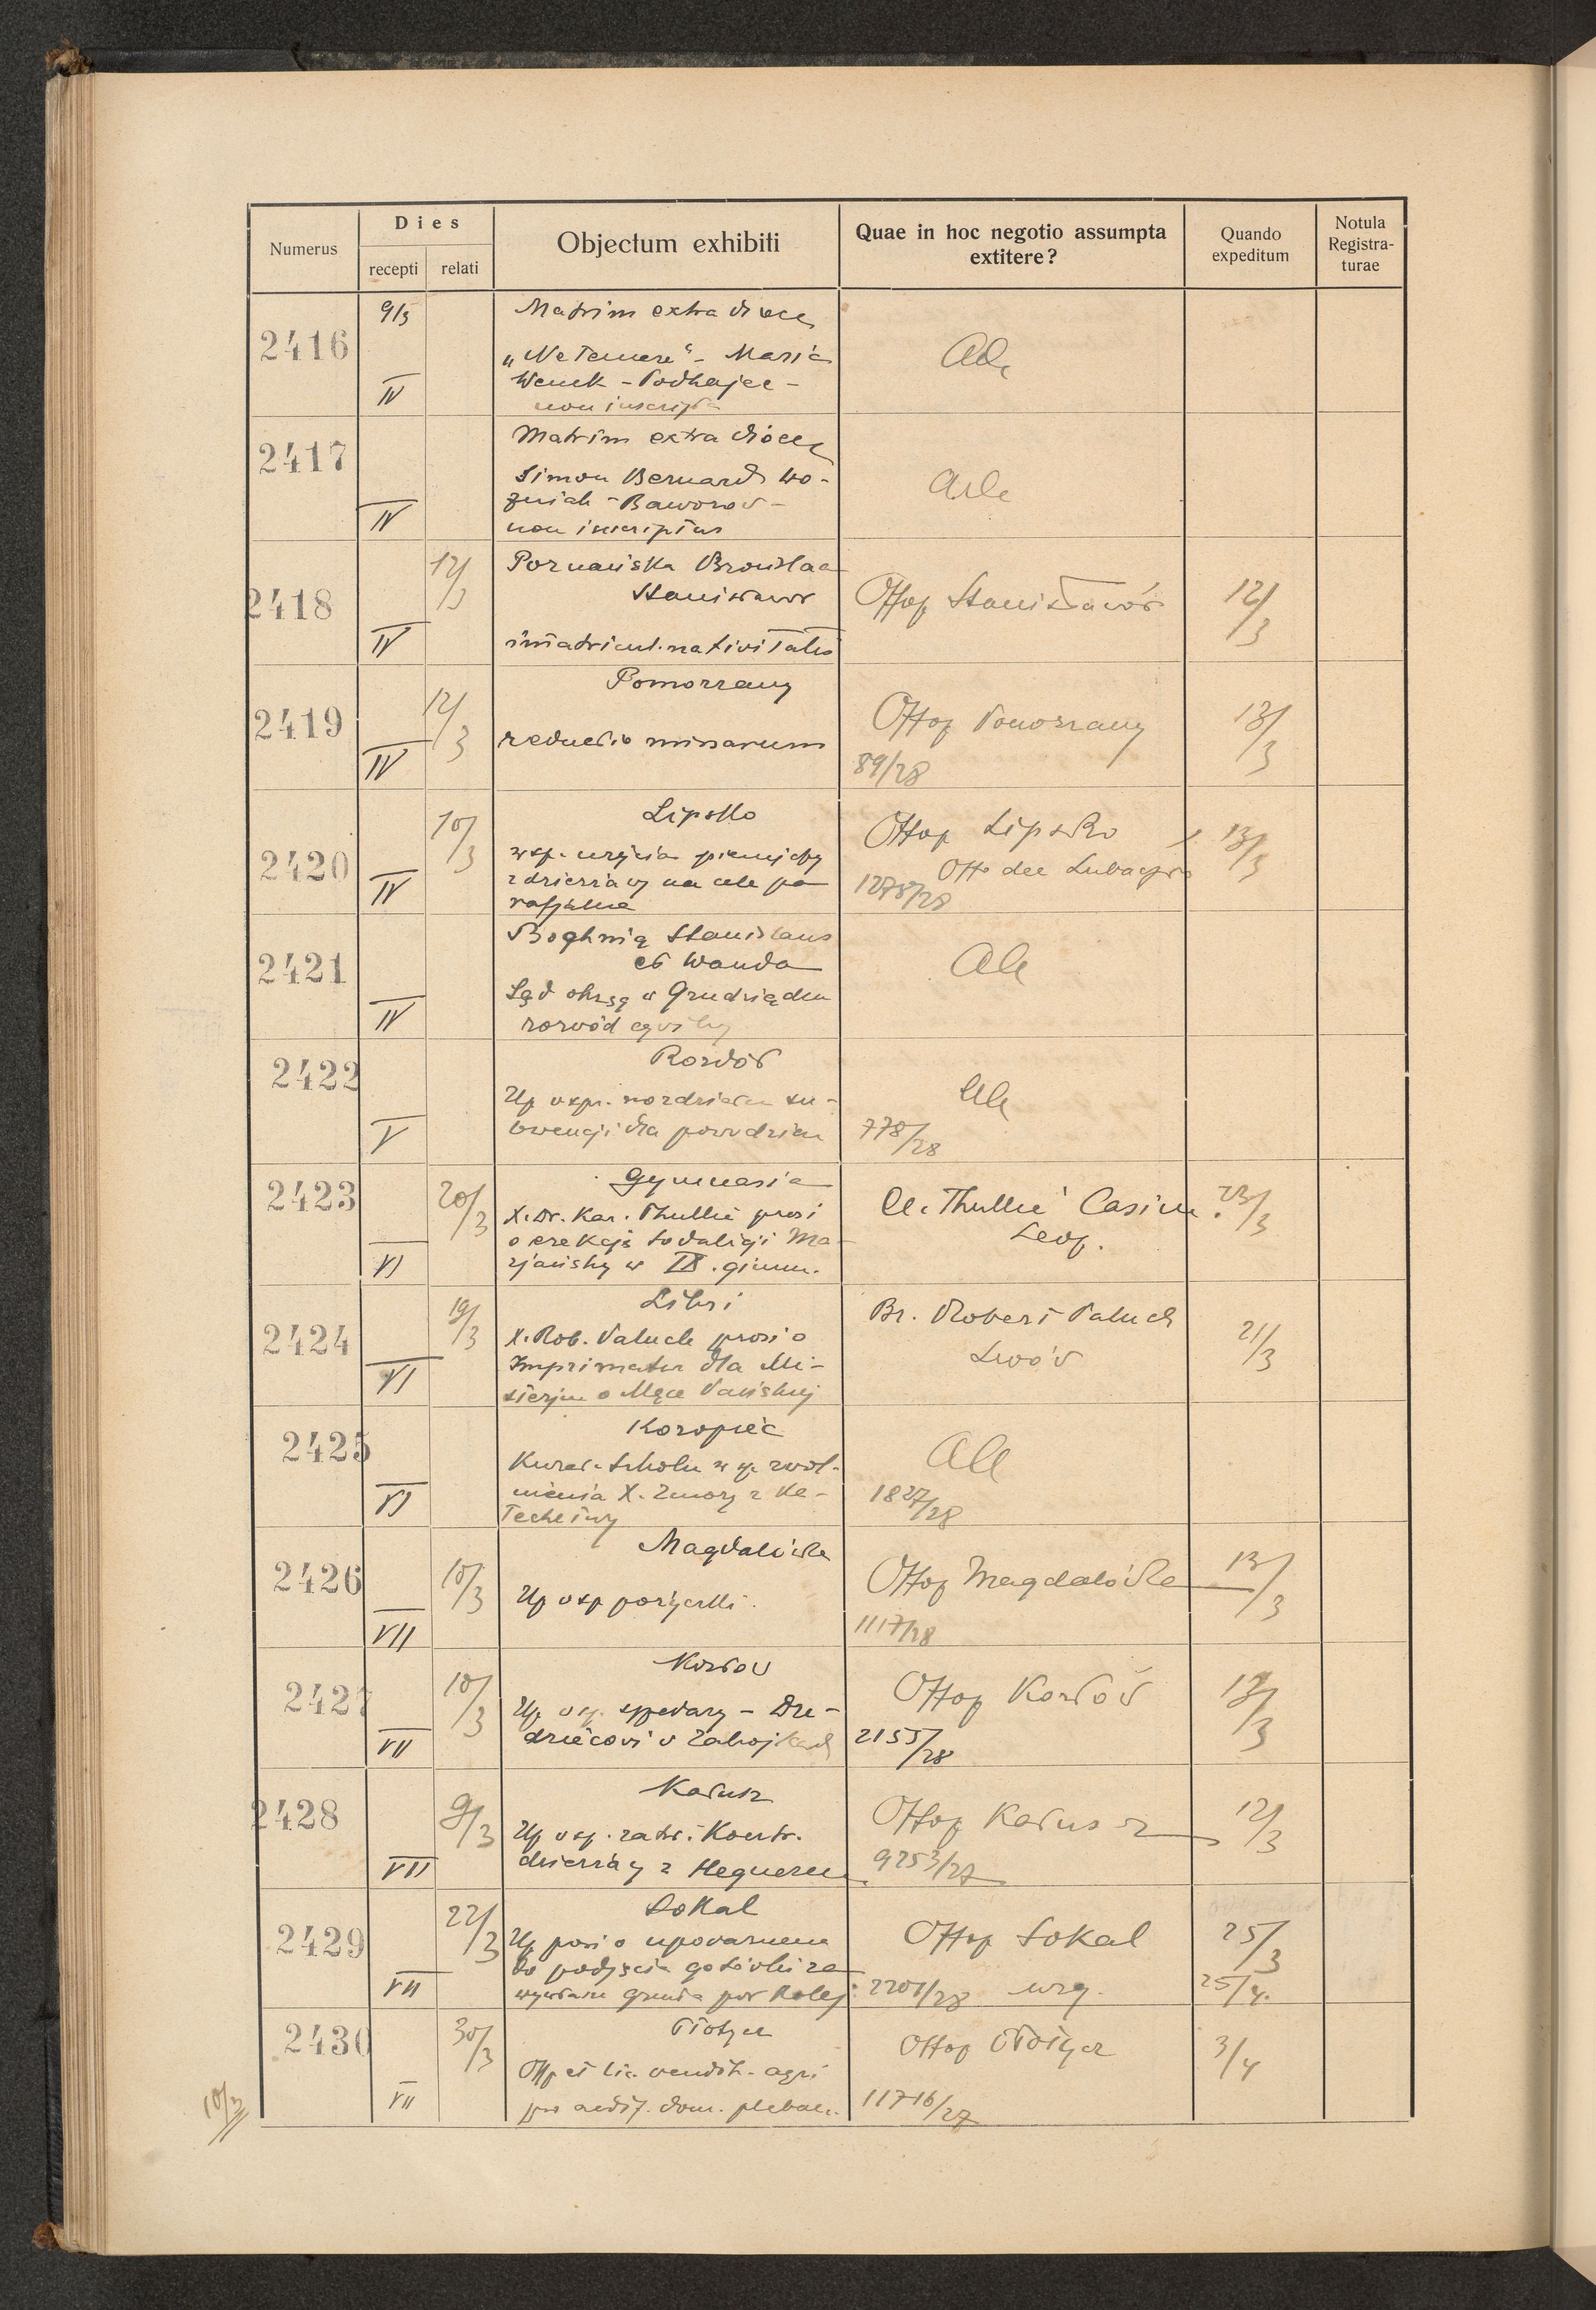 Numerus
Dies
recepti relati
Objectum exhibiti
Quae in hoc negotio assumpta
extitere?
Quando
expeditum
Notula
Registra-
turae
2416
9/3
IV
Matrim extra dioec
„Ne Temere“ - Maria
Wenek - Podhajce -
non inscripta
2417
IV
Matrim extra dioec
Simon Bernard Wo-
źniak - Baworów -
non inscriptus
2418
12/3
IV
Poznańska Bronisława
Stanisławów
immatricul. nativitatis
Offop Stanisławów
12/3
2419
12/3
IV
Pomorzany
reductio missarum
Offop Pomorzany
89/28
13/3
2420
10/3
IV
Lipsko
wsp. użycia pieniędzy
z dzierżawy na cele pa
rafjalne
Offop Lipsko
Off. dec
1278/28
13/3
2421
IV
Stanislaus
et Wanda
Sąd okrsg w Grudziądzu
rozwód cywilny
2422
V
Rozdół
Up wsp. rozdziału su-
bwencji dla powodzian
778/28
2423
20/3
VI
Gymnasia
X. Dr. Kaz. Thullie prosi
o erekcję sodalicji Ma-
rjańskiej w IX. gimn.
Cl. Thullie Casim.
Leop.
23/3
2424
19/3
VI
Libri
X. Rob. Paluch prosi o
Imprimatur dla Mi-
sterjum o Męce Pańskiej
Br. Robert Paluch
Lwów
21/3
2425
VI
Koropiec
Kurat. szkolne w sp. zwol-
nienia X. Zmory z ka-
techetury
1827/28
2426
10/3
VII
Magdalówka
Up wsp pożyczki.
Offop Magdalówka
1117/28
13/3
2427
10/3
VII
Kozłów
Up wsp. sprzedaży - Dze-
Offop Kozłów
2155/28
13/3
2428
9/3
VII
Kałusz
Up wsp. zatw. Kontr.
dzierżawy z Hegnerem
Offop Kałusz
9253/27
12/3
2429
22/3
VII
Sokal
Up prosi o upoważnienie
do podjęcia gotówki za
grunta pod kolej
Offop Sokal
2201/28 urg.
25/3
25/4.
2430
30/3
VII
Płotycz
Off et lic. vendit. agri
pro aedif. dom. pleban.
Offop Płotycz
11716/27
3/4
10/3